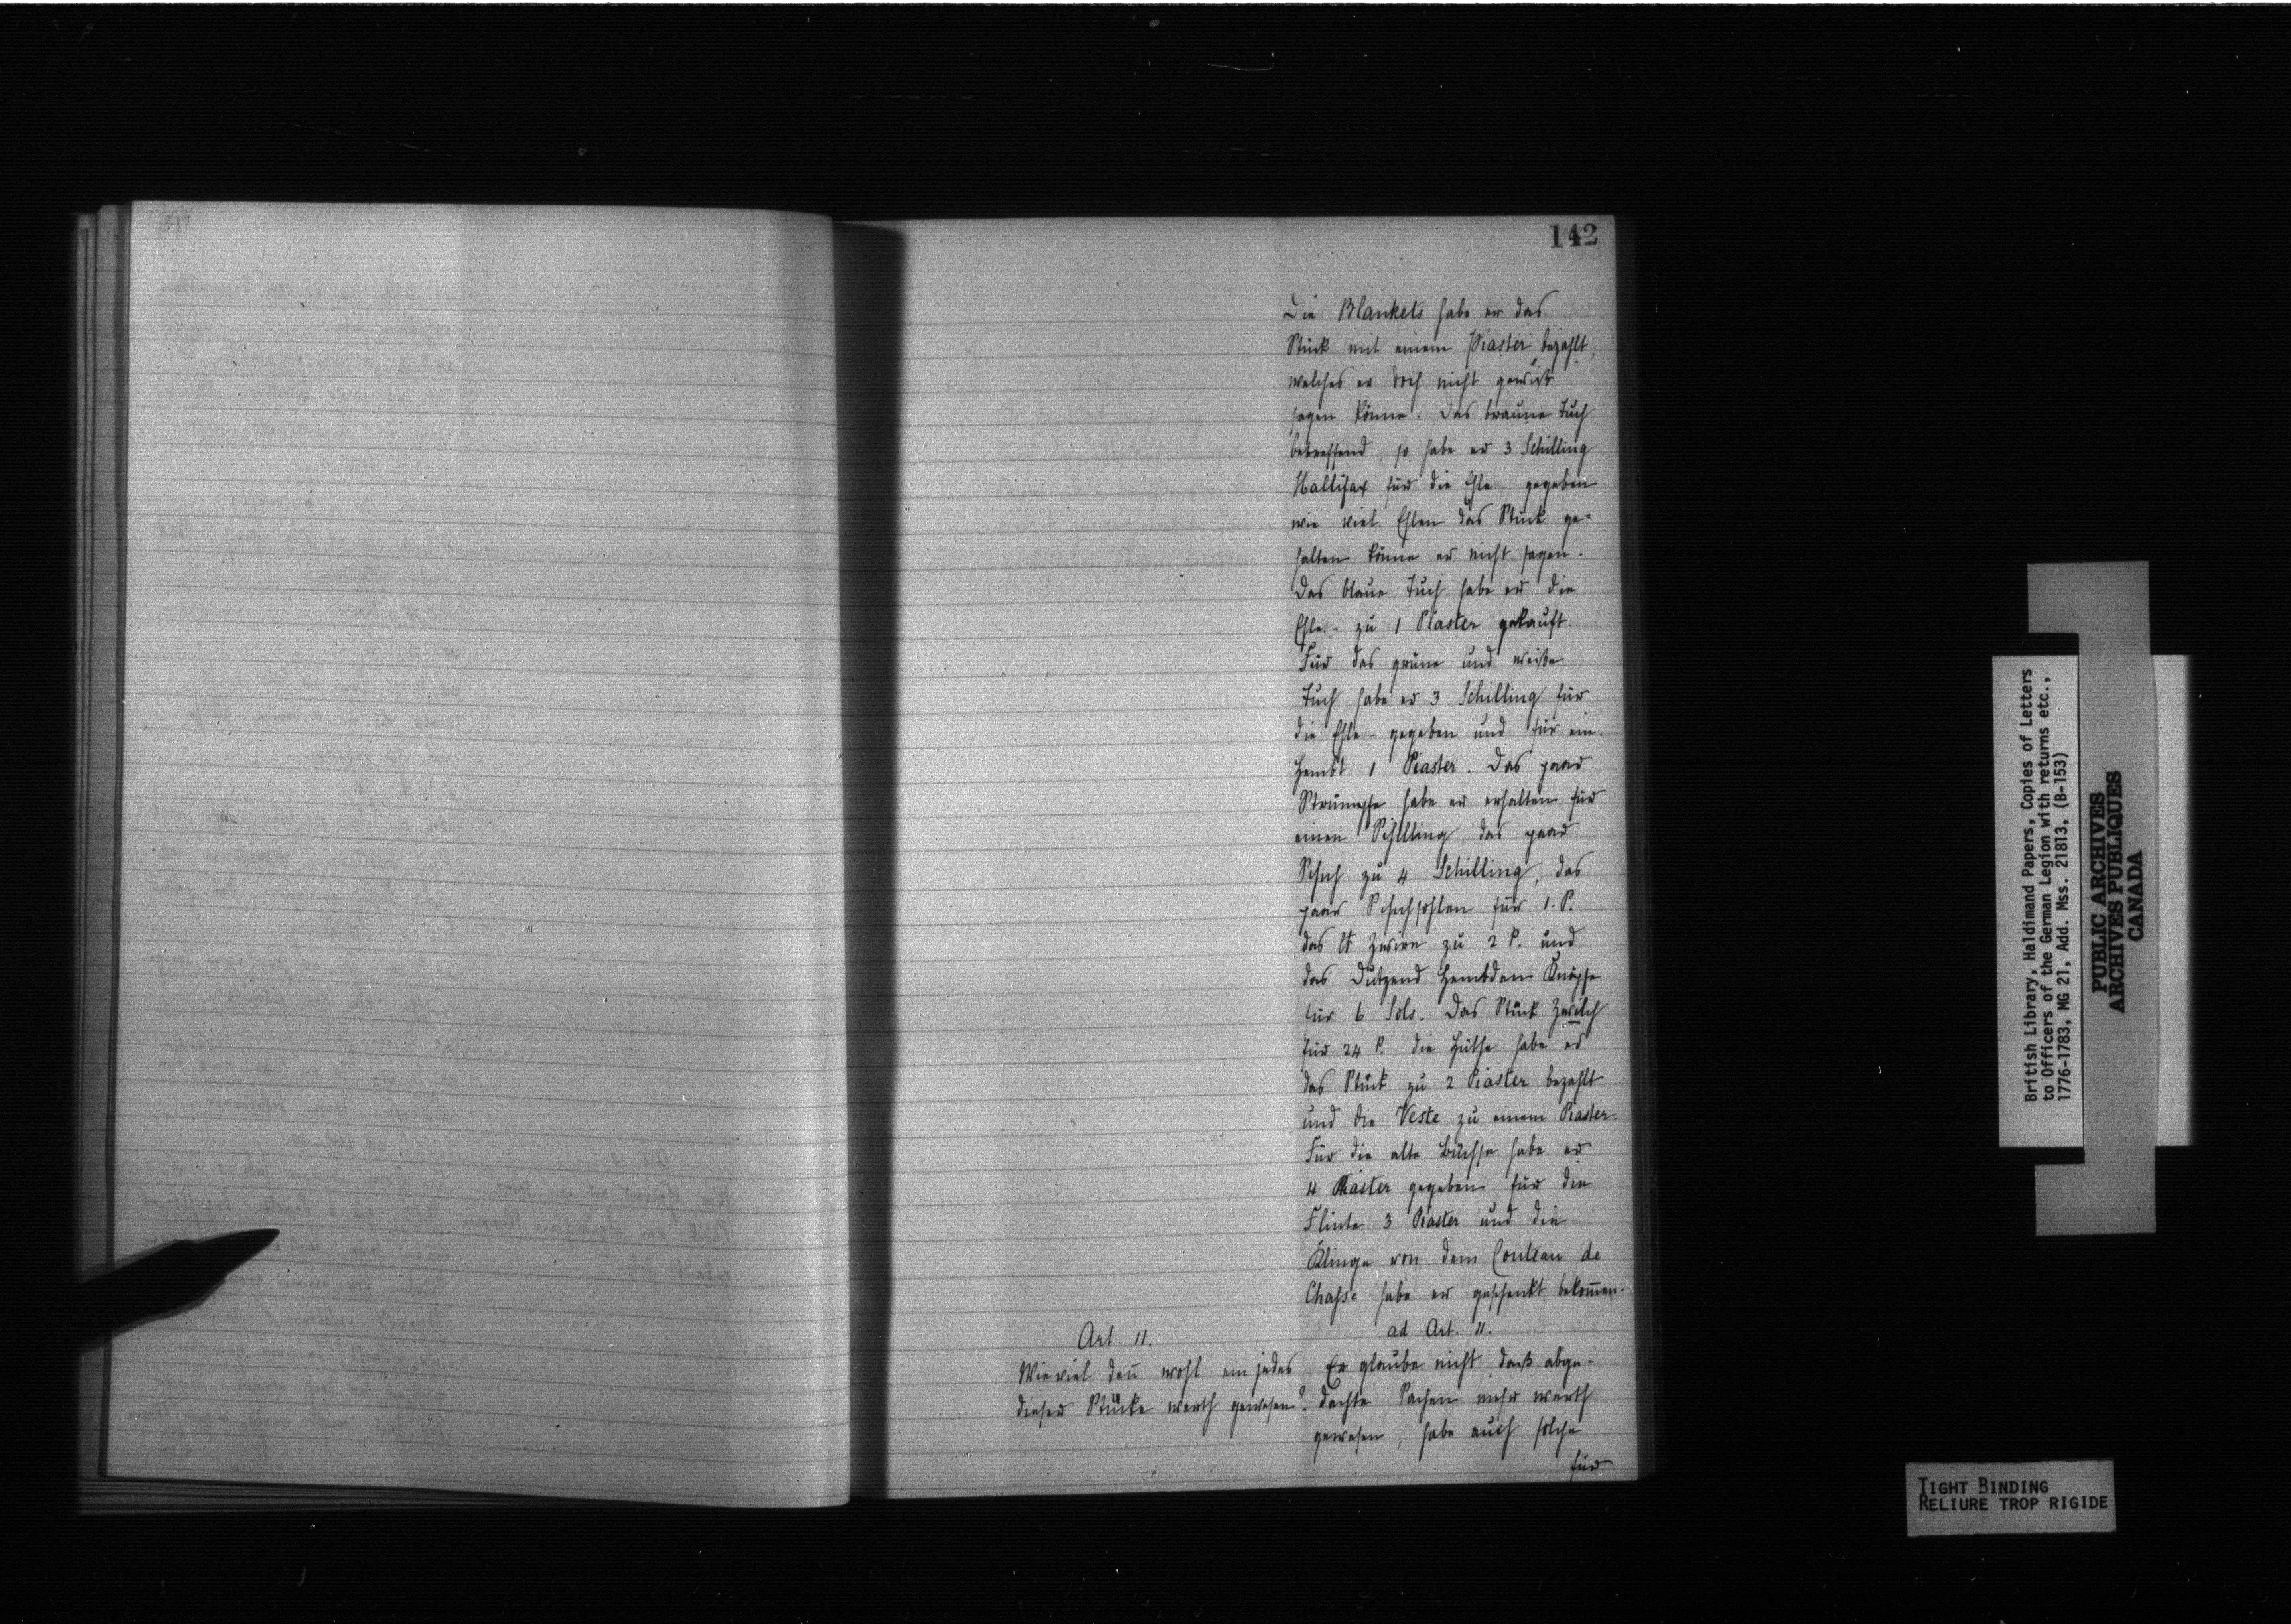 142
Die Blankets habe er das
Stück mit einem Piaster bezahlt,
welches er doch nicht gewiß
sagen könne. Das braune Tuch
betreffend, so habe er 3 Schilling
Hallifax für die Ehle gegeben
wie viel Ehlen das Stück ge-
halten könne er nicht sagen.
Das blaue Tuch habe er die
Ehle - zu 1 Piaster gekauft.
Für das grüne und weiße
Tuch habe er 3 Schilling für
die Ehle - gegeben und für ein
Hembt 1 Piaster. Das paar
Strümpfe habe er erhalten für
einen Schilling das paar
Schuh zu 4 Schilling, das
paar Schuhsohlen für 1. P.
das ℔ Zwirn zu 2 P. und
das Dutzend Hembden Knöpfe
für 6 Sols. Das Stück Zwilch
für 24 P. die Hüthe habe er
das Stück zu 2 Piaster bezahlt
und die Veste zu einem Piaster.
Für die alte Büchse habe er
4 Piaster gegeben für die
Flinte 3 Piaster und die
Klinge von dem Couteau de
Chasse habe er geschenkt bekom̄en.
Art. 11.
Wie viel den̄ wohl ein jedes
dieser Stücke werth gewesen?
ad Art. 11.
Er glaube nicht, daß abge-
dachte Sachen mehr werth
gewesen, habe auch solche
für
British Library, Haldimand Papers, Copies of Letters
to Officers of the German Legion with returns etc.,
1776-1783, MG 21, Add. Mss. 21813, (B-153)
PUBLIC ARCHIVES
ARCHIVES PUBLIQUES
CANADA
TIGHT BINDING
RELIURE TROP RIGIDE